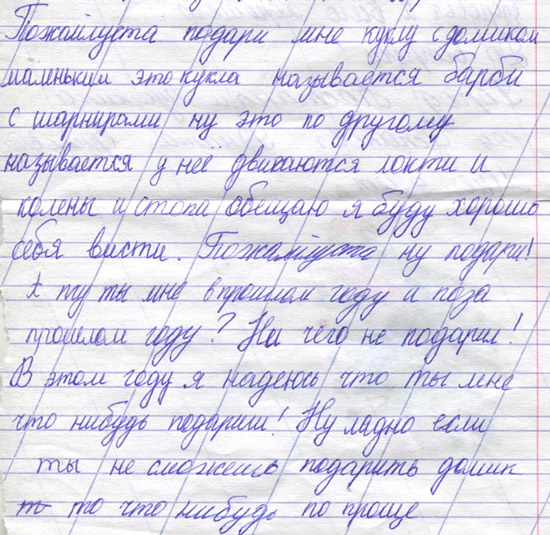 Пожайлуста подари мне куклу с домиком
маленьким это кукла называется барби
с шарнирами ну это по другому
называется у неё двигаются локти и
колены и стопа обещаю я буду хорошо
себя висти. Пожамйуста ну подари!
А ту ты мне в прошлом году и поза
прошлом году? Ни чего не подарил!
В этом году я надеюсь что ты мне
что нибудь подариш! Ну ладно если
ты не сможешь подарить домик
то что нибудь по проще